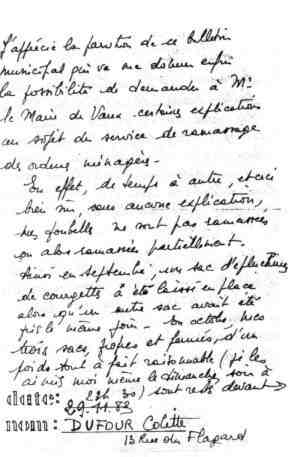 J'apprécie la parution de ce bulletin
municipal qui va me donner enfin
la possibilité de demander à Mr
le Maire de Vaux certaines explications
au sujet du service de ramassage
des ordures ménagères.
En effet, de temps à autre, et ceci
bien sûr, sans aucune explication,
mes poubelles ne sont pas ramassées
ou alors ramassées partiellement.
Ainsi en septembre, un sac d'épluchures
de courgettes a été laissé en place
alors qu'un autre sac avait été
pris le même jour. En octobre, mes
trois sacs, propres et fermés, d'un
poids tout à fait raisonnable (je les
ai mis moi même le dimanche soir à
22h 30) sont restés devant →
date: 29.11.83
nom: DUFOUR Colette
13 Rue du Flagard